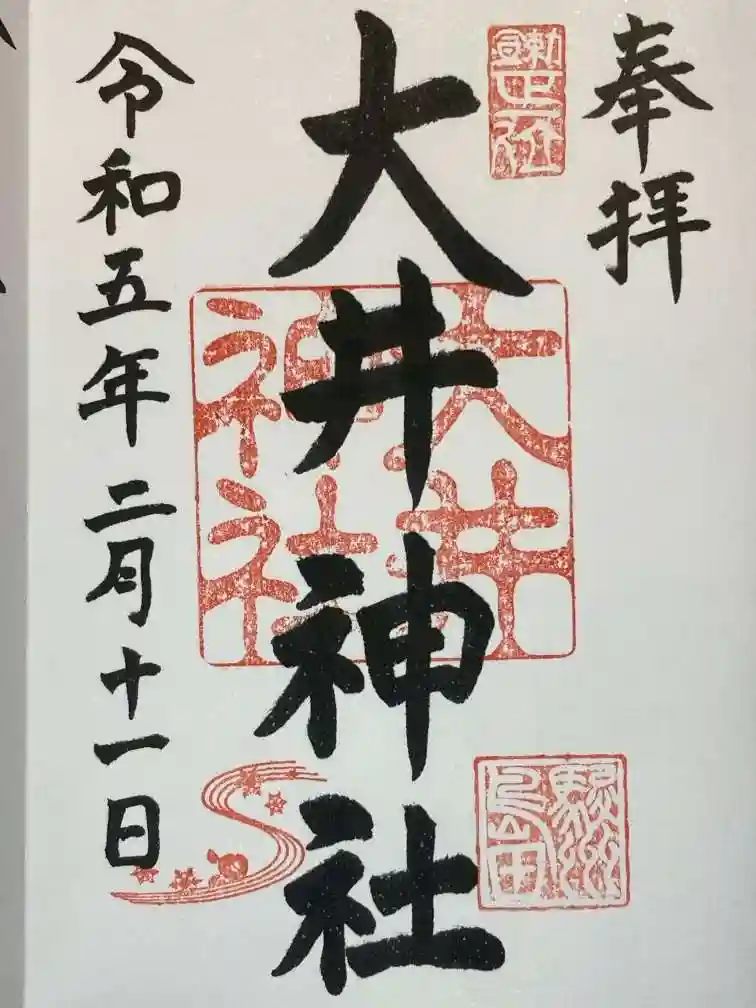 奉拝
大井神社
大井
神社
駿州
島田
令和五年二月十一日